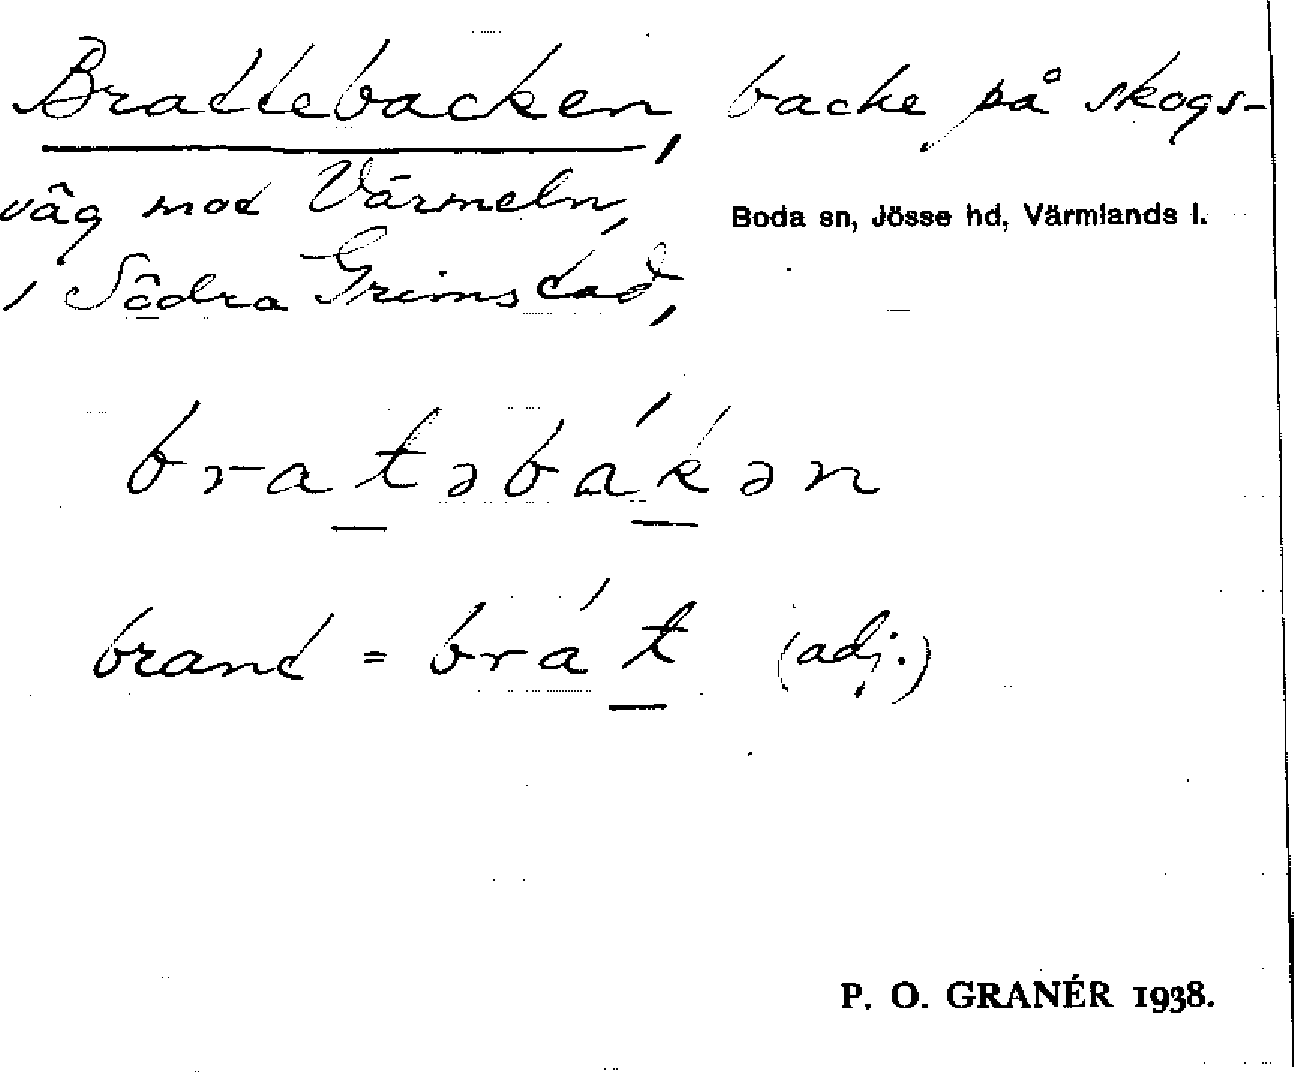 Brattebacken, backe på skogs-
väg mot Värmeln,
Boda sn, Jösse hd, Värmlands l.
i Södra Grimstad,
bratəbákən
brant = brát (adj.)
P. O. GRANÉR 1938.